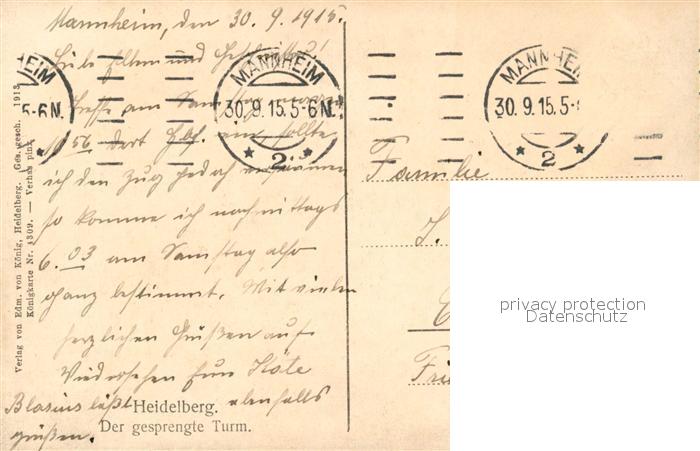 Mannheim, den 30. 9. 1915.
Liebe Eltern und Geschwister!
Treffe am Samstag
10 56 dort Hbf. ein sollte
ich den Zug jedoch versäumen
so komme ich nachmittags
6.03 am Samstag also
ganz bestimmt. Mit vielen
herzlichen Grüßen auf
Wiedersehen Eure Käte
Blasius läßt ebenfalls
grüßen.
Heidelberg.
Der gesprengte Turm.
Verlag von Edm. von König, Heidelberg. Ges. gesch. 1913
Königkarte Nr. 1309. — Verhas pinx.
HEIM
5-6N.
MANNHEIM
30.9.15.5-6N.
* 2 *
MANNHEI
30.9.15.5-6
* 2 *
Familie
J.
Fri
privacy protection
Datenschutz